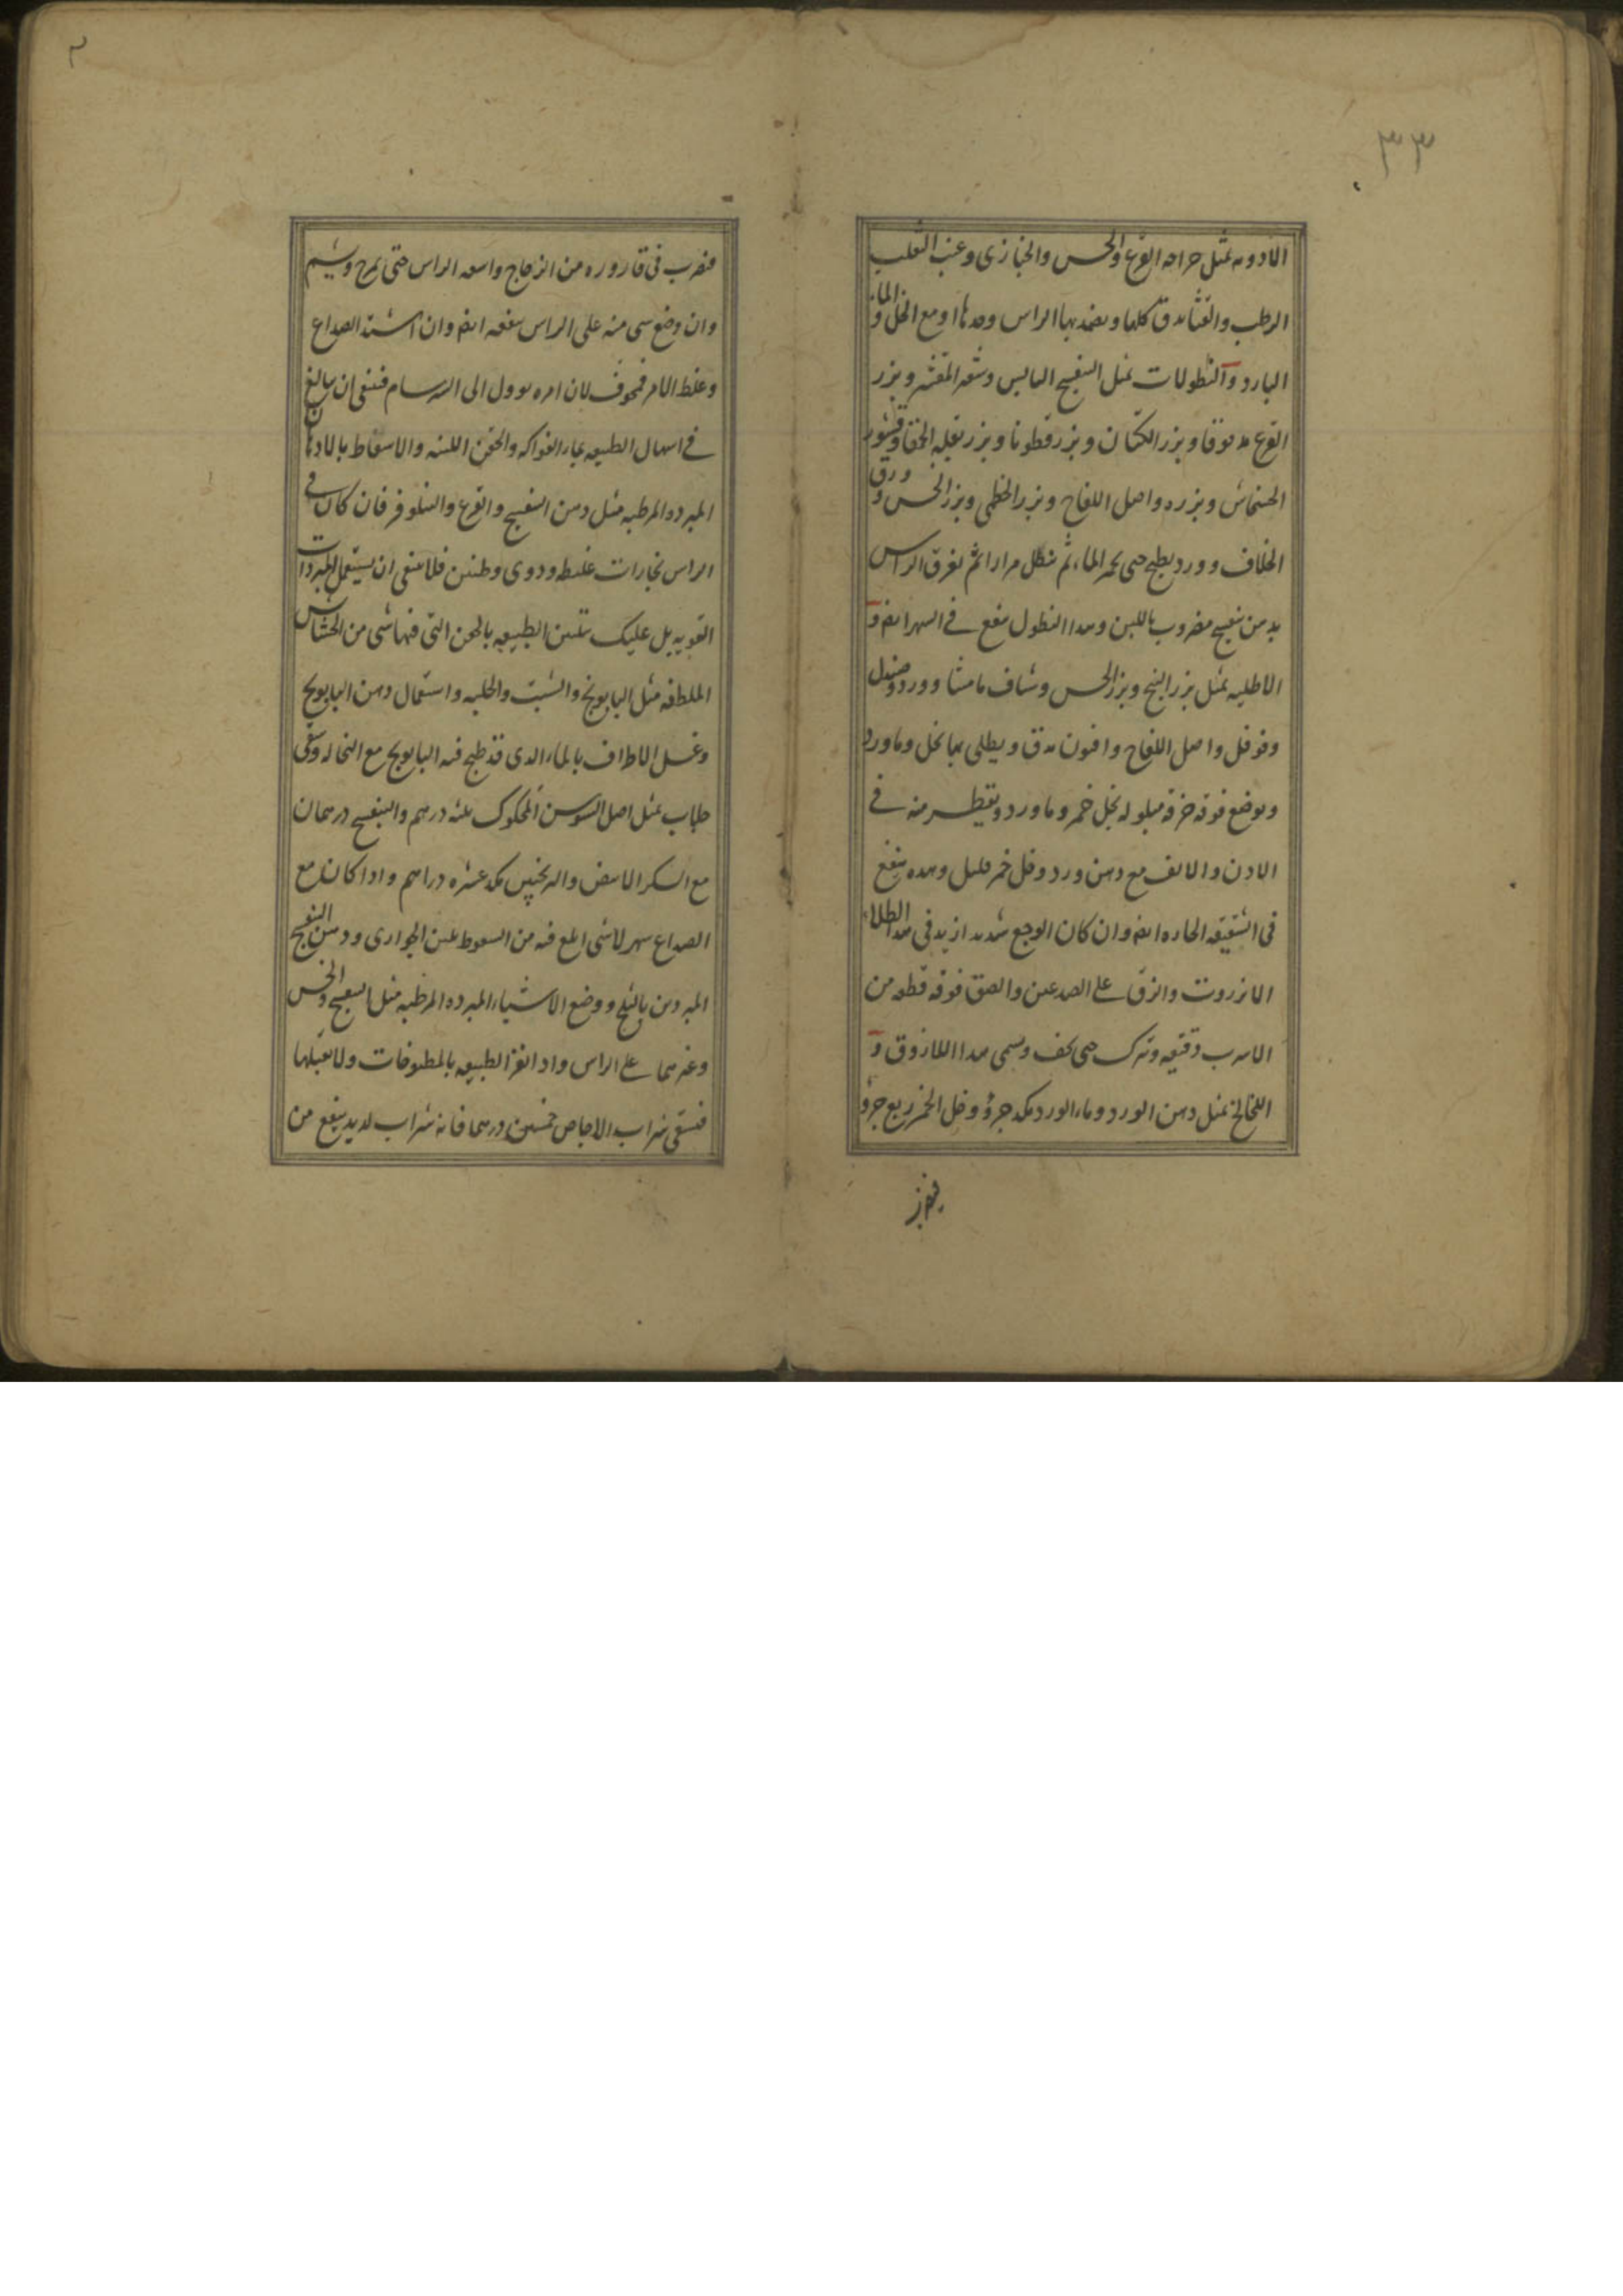 ٣٣
الادویه مثل جراده القرع والخس والخبازی وعنب الثعلب
الرطب والقثا یدق کلها ویضمد بها الراس وحدها او مع الخل والماء
البارد والنطولات مثل البنفسج الیابس وشعیر المقشر وبزر
القرع مدقوقا وبزر الکتان وبزر قطونا وبزر بقله الحمقا وقشور
الخشخاش وبزره واصل اللفاح وبزر الخطمی وبزر الخس وورق
الخلاف وورد یطبخ حتی یحمر الماء ثم ینطل مرارا ثم یغرق الراس
بدهن بنفسج مضروب باللبن وهذا النطول ینفع فی السهر ایضا و
الاطلیه مثل بزر البنج وبزر الخس وشیاف مامیثا وورد وصندل
وفوفل واصل اللفاح وافیون یدق ویطلی بها بخل وماورد
ویوضع فوقه خرقه مبلوله بخل خمر وماورد ویقطر منه فی
الاذن والانف مع دهن ورد وخل خمر قلیل وهذه ینفع
فی الشقیقه الحاره ایضا وان کان الوجع شدید ازید فی هذا الطلاء
الانزروت والزق علی الصدغین والصق فوقه قطعه من
الاسرب رقیقه وترک حتی یجف ویسمی هذا اللازوق و
اللخالخ مثل دهن الورد وماء الورد مکد جزؤ وخل الخمر ربع جزؤ
فیضرب
فیضرب فی قاروره من الزجاج واسعه الراس حتی یمزج ویشم
وان وضع شی منه علی الراس ینفعه ایضا وان اشتد الصداع
وغلظ الامر فمخوف لان امره یوول الی السرسام فینبغی ان یبالغ
فی اسهال الطبیعه بماء الفواکه والحقن اللینه والاسعاط بالادهان
المبرده المرطبه مثل دهن البنفسج والقرع والنیلوفر فان کان فی
الراس بخارات غلیظه ودوی وطنین فلا ینبغی ان یستعمل المبردات
القویه بل علیک بتلیین الطبیعه بالحقن التی فیها شی من الحشایش
الملطفه مثل البابونج والشبت والحلبه واستعمال دهن البابونج
وغسل الاطراف بالماء الذی قد طبخ فیه البابونج مع النخاله وسقی
جلاب مثل اصل السوس المحکوک ثلثه درهم والبنفسج درهمان
مع السکر الابیض والترنجبین مکد عشره دراهم واذا کان مع
الصداع سهر لا شی ابلغ فیه من السعوط بلبن الجواری ودهن البنفسج
المبردین بالثلج ووضع الاشیاء المبرده المرطبه مثل البنفسج والخس
وغیرهما علی الراس واذا نفر الطبیعه بالمطبوخات ولا تقبلها
فتسقی شراب الاجاص خمسین درهما فانه شراب لذیذ ینفع من